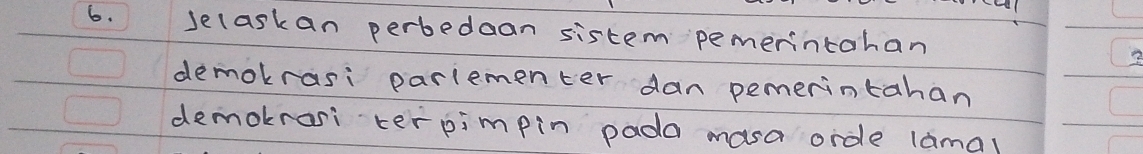 6. Jelaskan perbedaan sistem pemerintahan
demokrasi parlementer dan pemerintahan
demokrasi terpimpin pada masa orde lama!